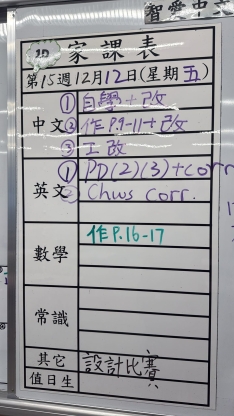 智愛中文
1D 家課表
第15週12月12日(星期五)
中文 ①自學+改
②作P.9-11+改
③工改
英文 ①PD(2)(3)+corr
②Chws corr.
數學 作P.16-17
常識
其它 設計比賽
值日生